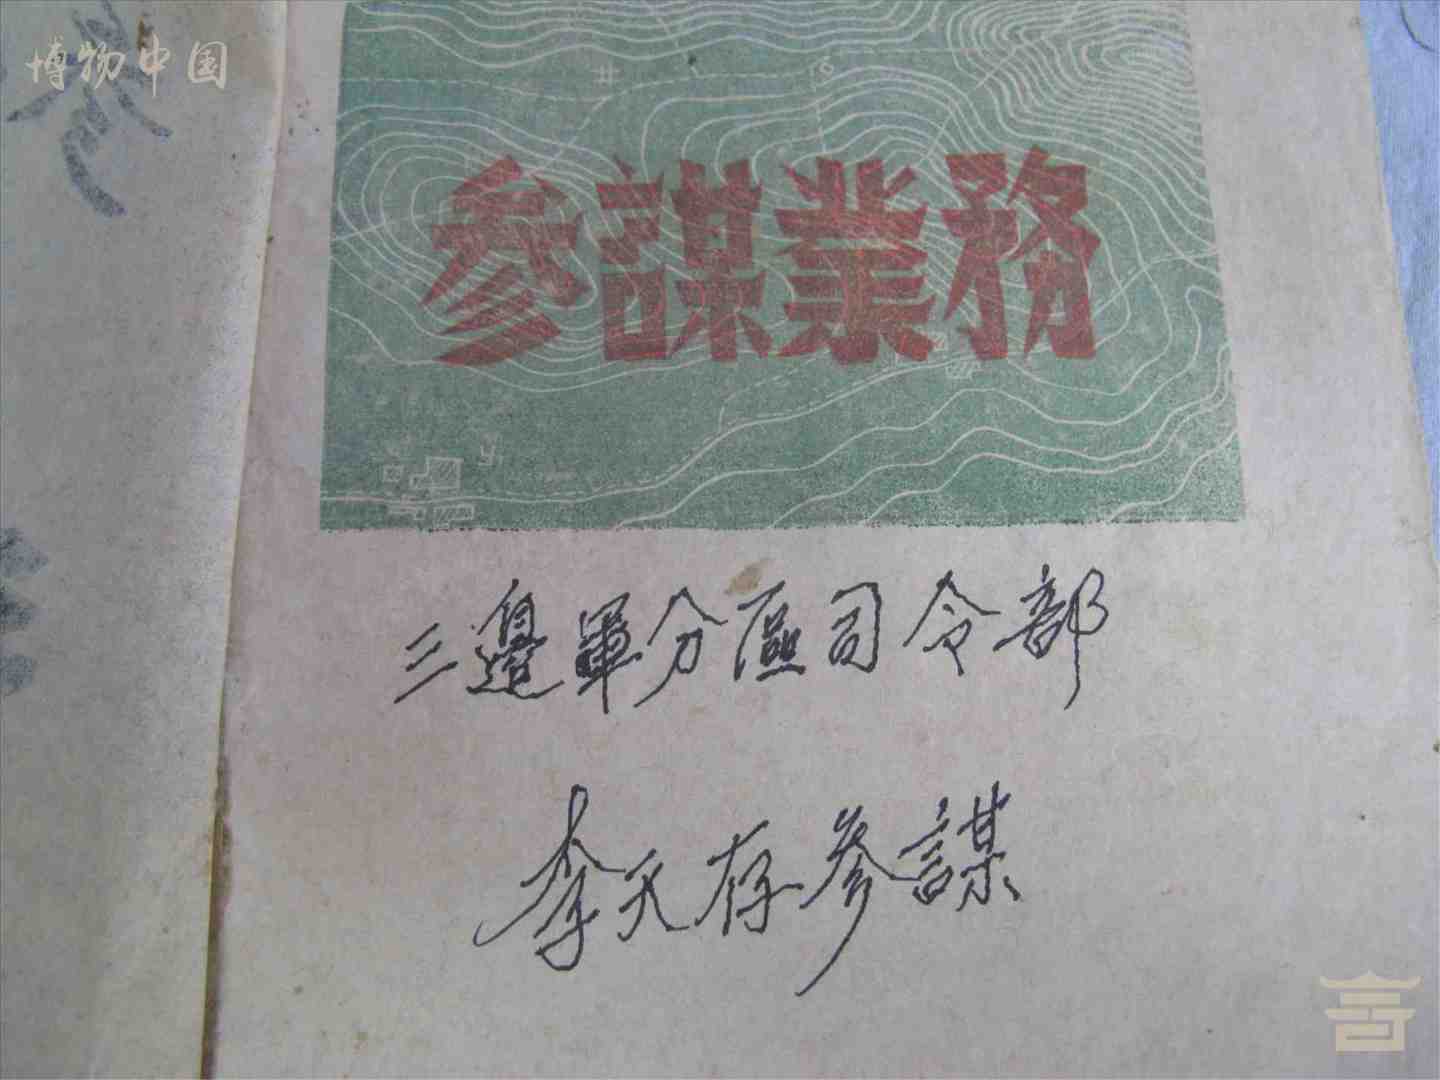 博物中国
参謀業務
三邊軍分區司令部
李天存参謀